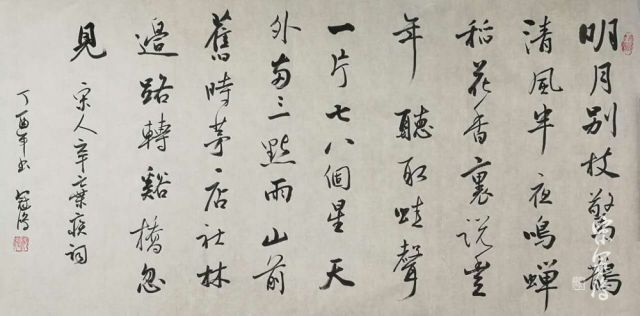 明月别枝驚鵲
清風半夜鳴蟬
稻花香裏说豐
年聽取蛙聲
一片七八個星天
外兩三點雨山前
舊時茅店社林
邊路轉谿橋忽
見
宋人辛棄疾詞
丁酉年书